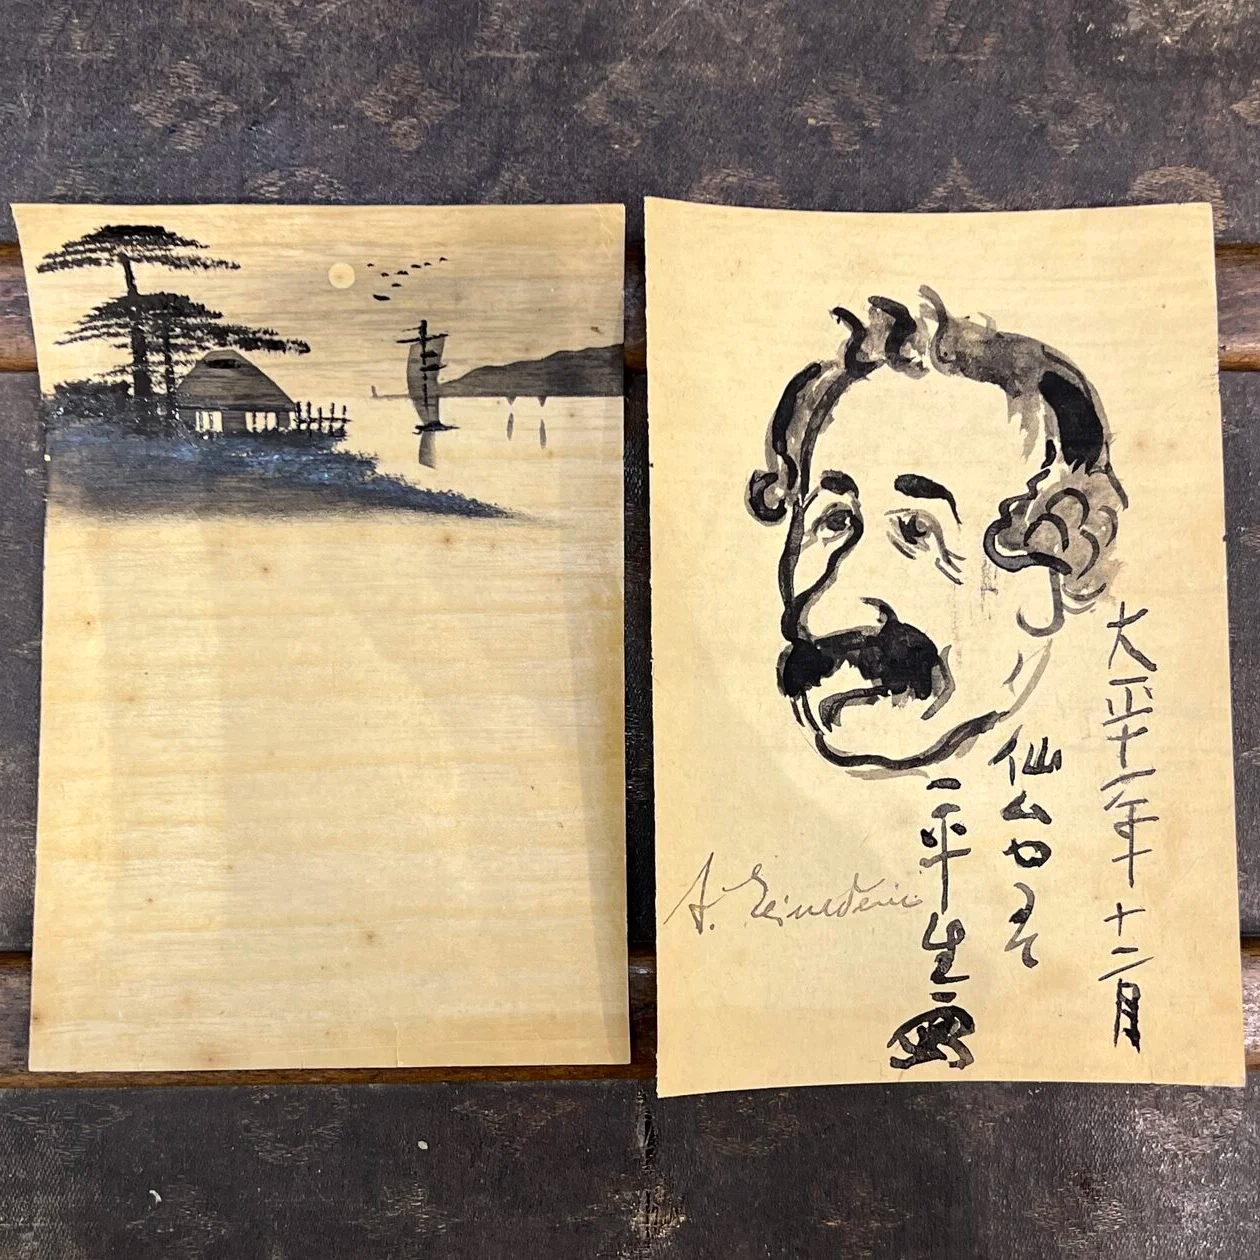 大正十一年十二月
仙台にて
一平生寫
A. Einstein